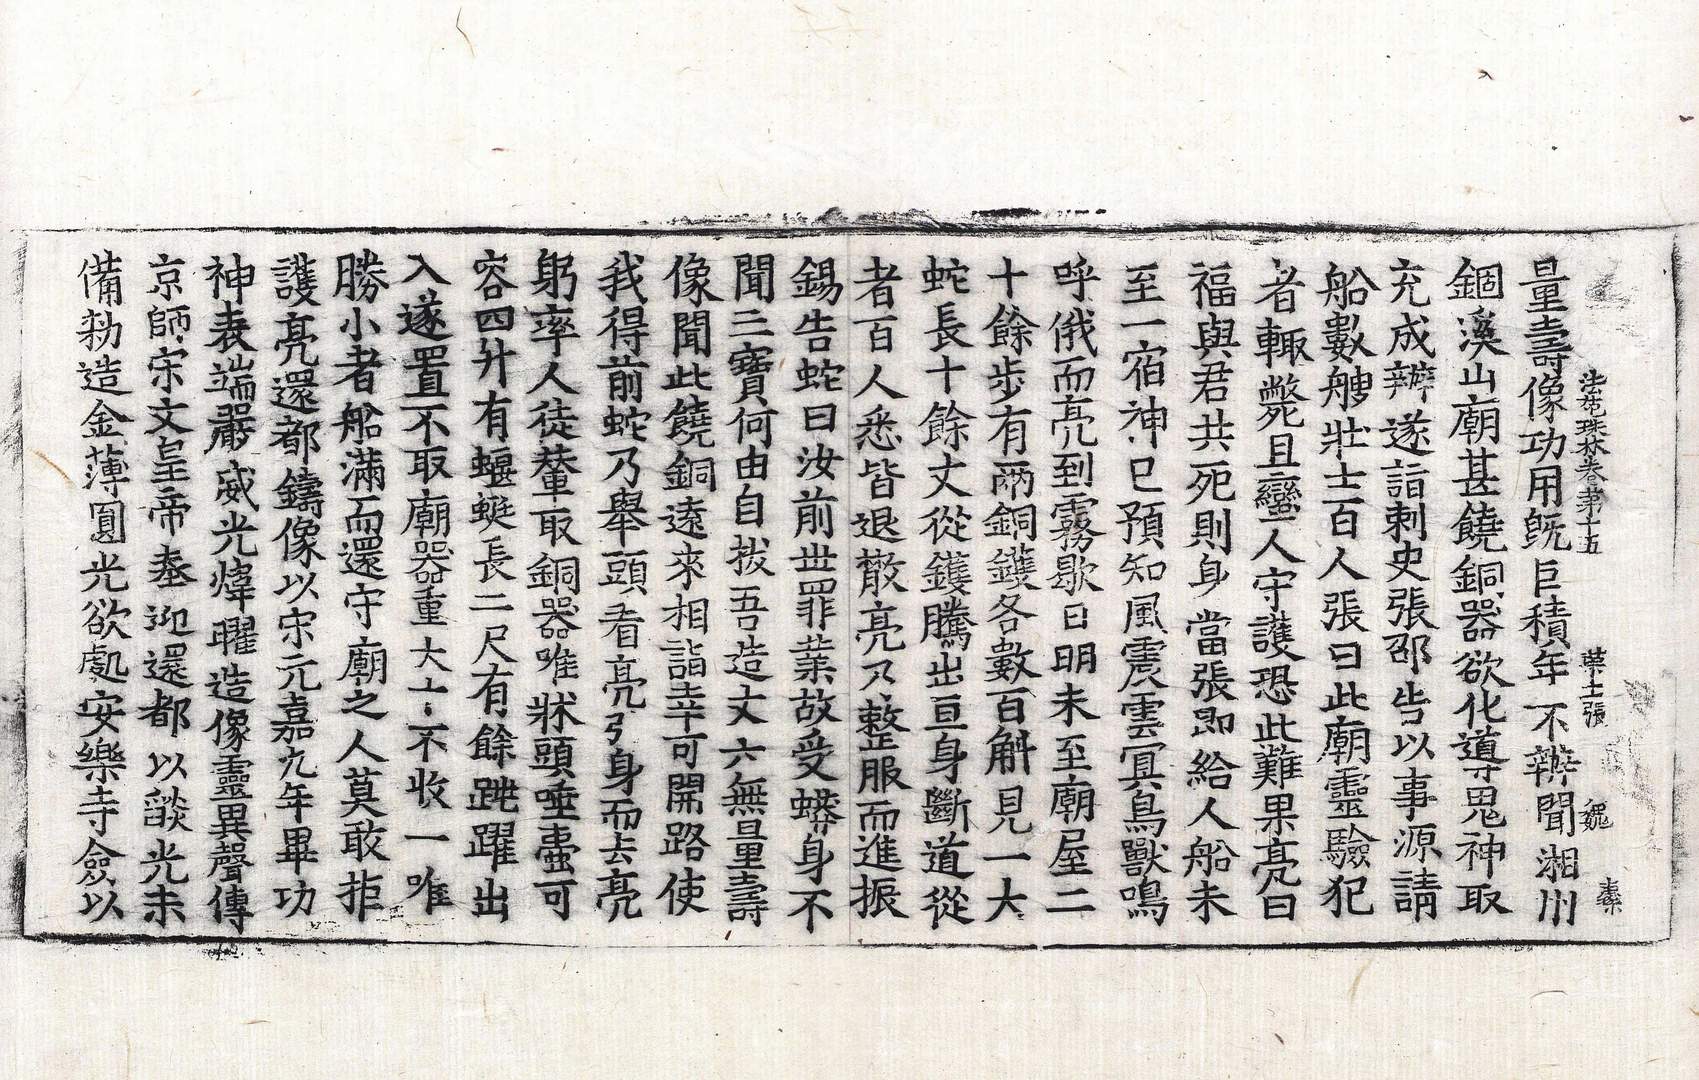 法苑珠林卷第十五 葉士張 魏 秦
量壽像功用旣巨積年不辦聞湘州
錮溪山廟甚饒銅器欲化導鬼神取
充成辦遂詣刺史張邵告以事源請
船數艘壯士百人張曰此廟靈驗犯
者輙斃且蠻人守護恐此難果亮曰
福與君共死則身當張卽給人船未
至一宿神已預知風震雲冥鳥獸鳴
呼俄而亮到霧歇日明未至廟屋二
十餘步有兩銅鑊各數百斛見一大
蛇長十餘丈從鑊騰出亘身斷道從
者百人悉皆退散亮乃整服而進振
錫告蛇曰汝前世罪業故受蟒身不
聞三寶何由自拔吾造丈六無量壽
像聞此饒銅遠來相詣幸可開路使
我得前蛇乃舉頭看亮引身而去亮
躬率人徒輦取銅器唯牀頭唾壺可
容四升有蝘蜓長二尺有餘跳躍出
入遂置不取廟器重大十不收一唯
勝小者船滿而還守廟之人莫敢拒
護亮還都鑄像以宋元嘉九年畢功
神表端嚴威光煒曜造像靈異聲傳
京師宋文皇帝奉迎還都以燄光未
備勑造金薄圓光欲處安樂寺僉以